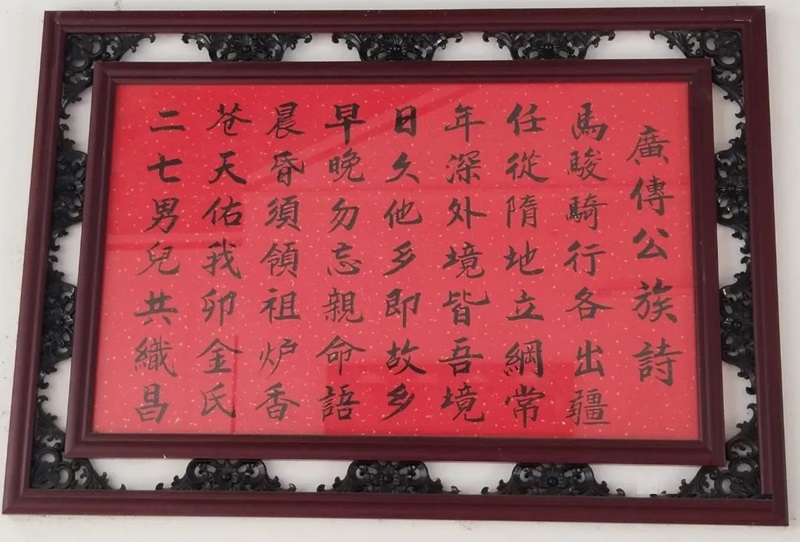 廣傳公族詩
馬駿騎行各出疆
任從隋地立綱常
年深外境皆吾境
日久他乡即故乡
早晚勿忘親命語
晨昏須領祖炉香
苍天佑我卯金氏
二七男兒共織昌